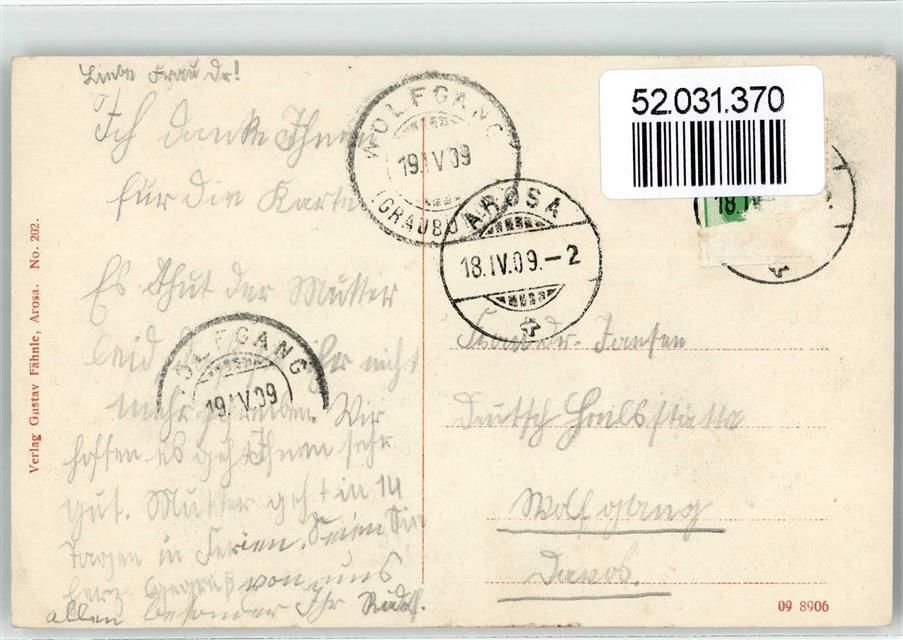 Liebe Frau Dr!
Ich danke Ihnen
für die Karte
Es thut der Mutter
leid Ihr nicht
mehr Wir
hoffen es geht Ihnen sehr
gut. Mutter geht in 14
Tagen in Ferien. Seien Sie
herz. gegrüß von uns
allen besonder Ihr Rudolf.
WOLFGANG
19.IV.09
(GRAUBÜ
AROSA
18.IV.09.-2
52.031.370
18.IV
WOLFGANG
19.IV.09
Frau Dr. Jansen
Deutsch Heilstätte
Wolfgang
Davos.
Verlag Gustav Fähnle, Arosa. No. 202.
09 8906